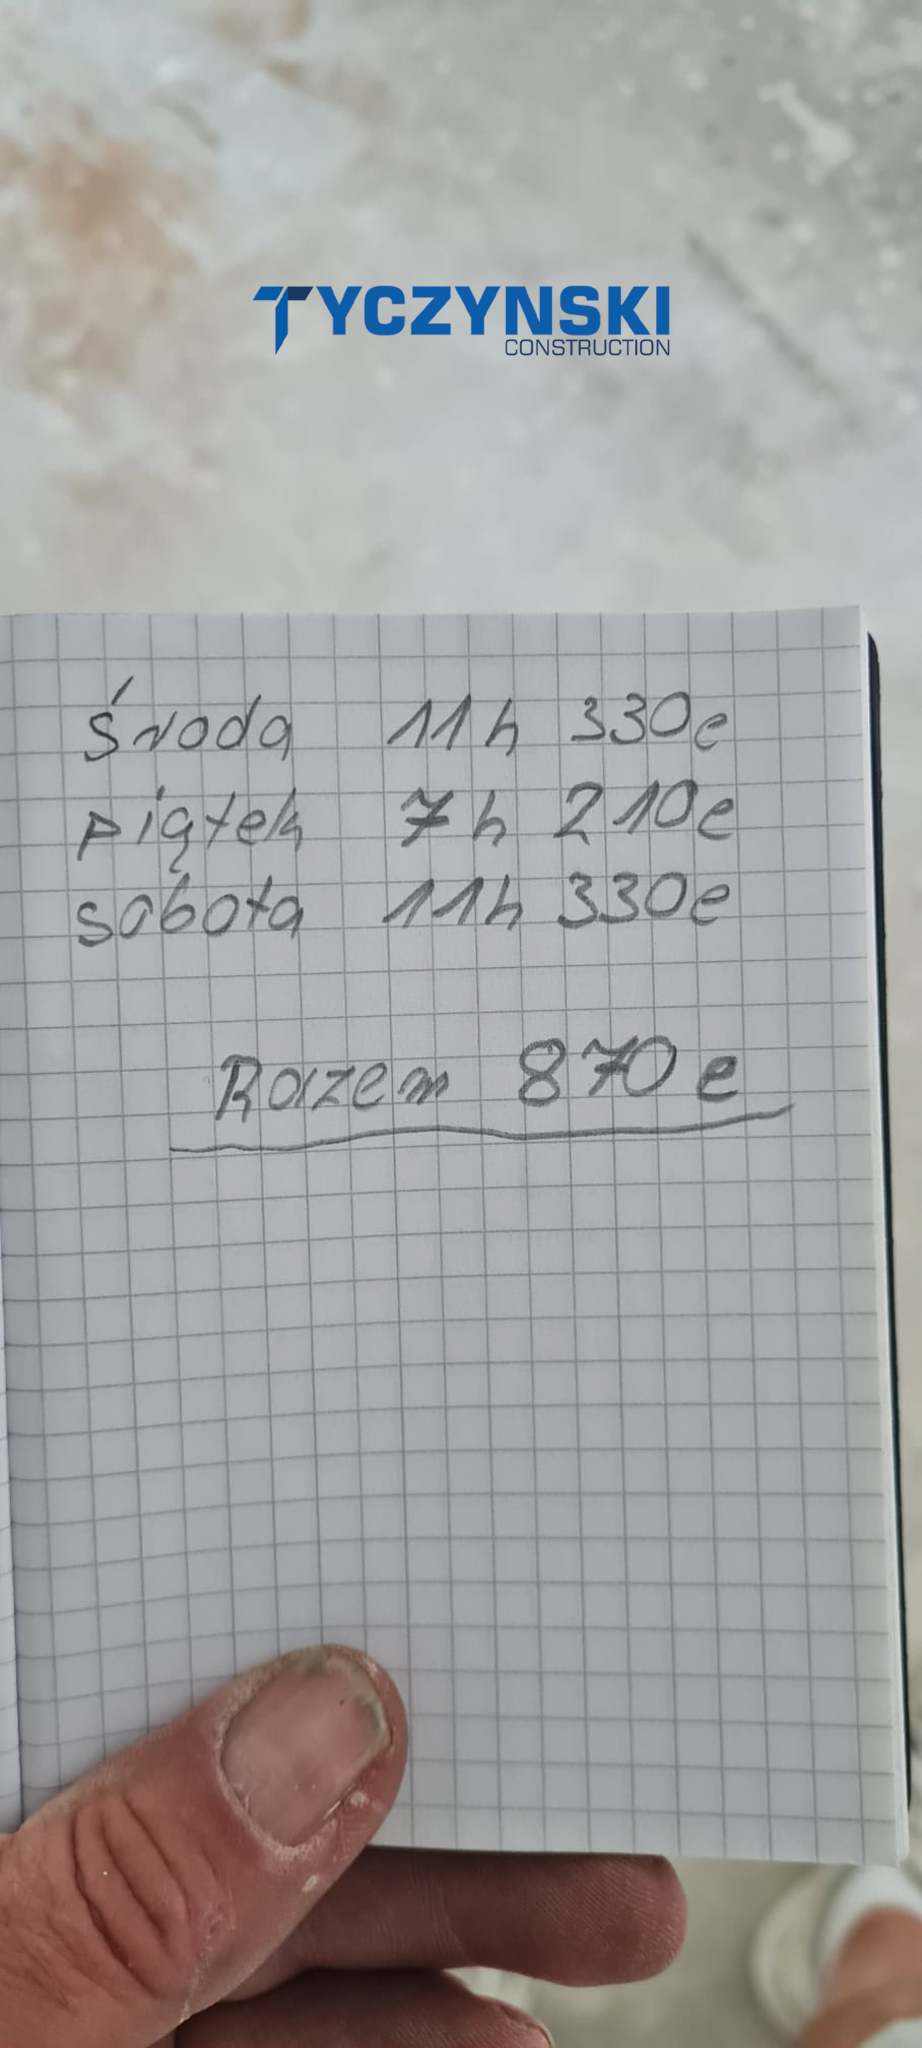 TYCZYNSKI
CONSTRUCTION
środa 11h 330e
piątek 7h 210e
sobota 11h 330e
Razem 870e